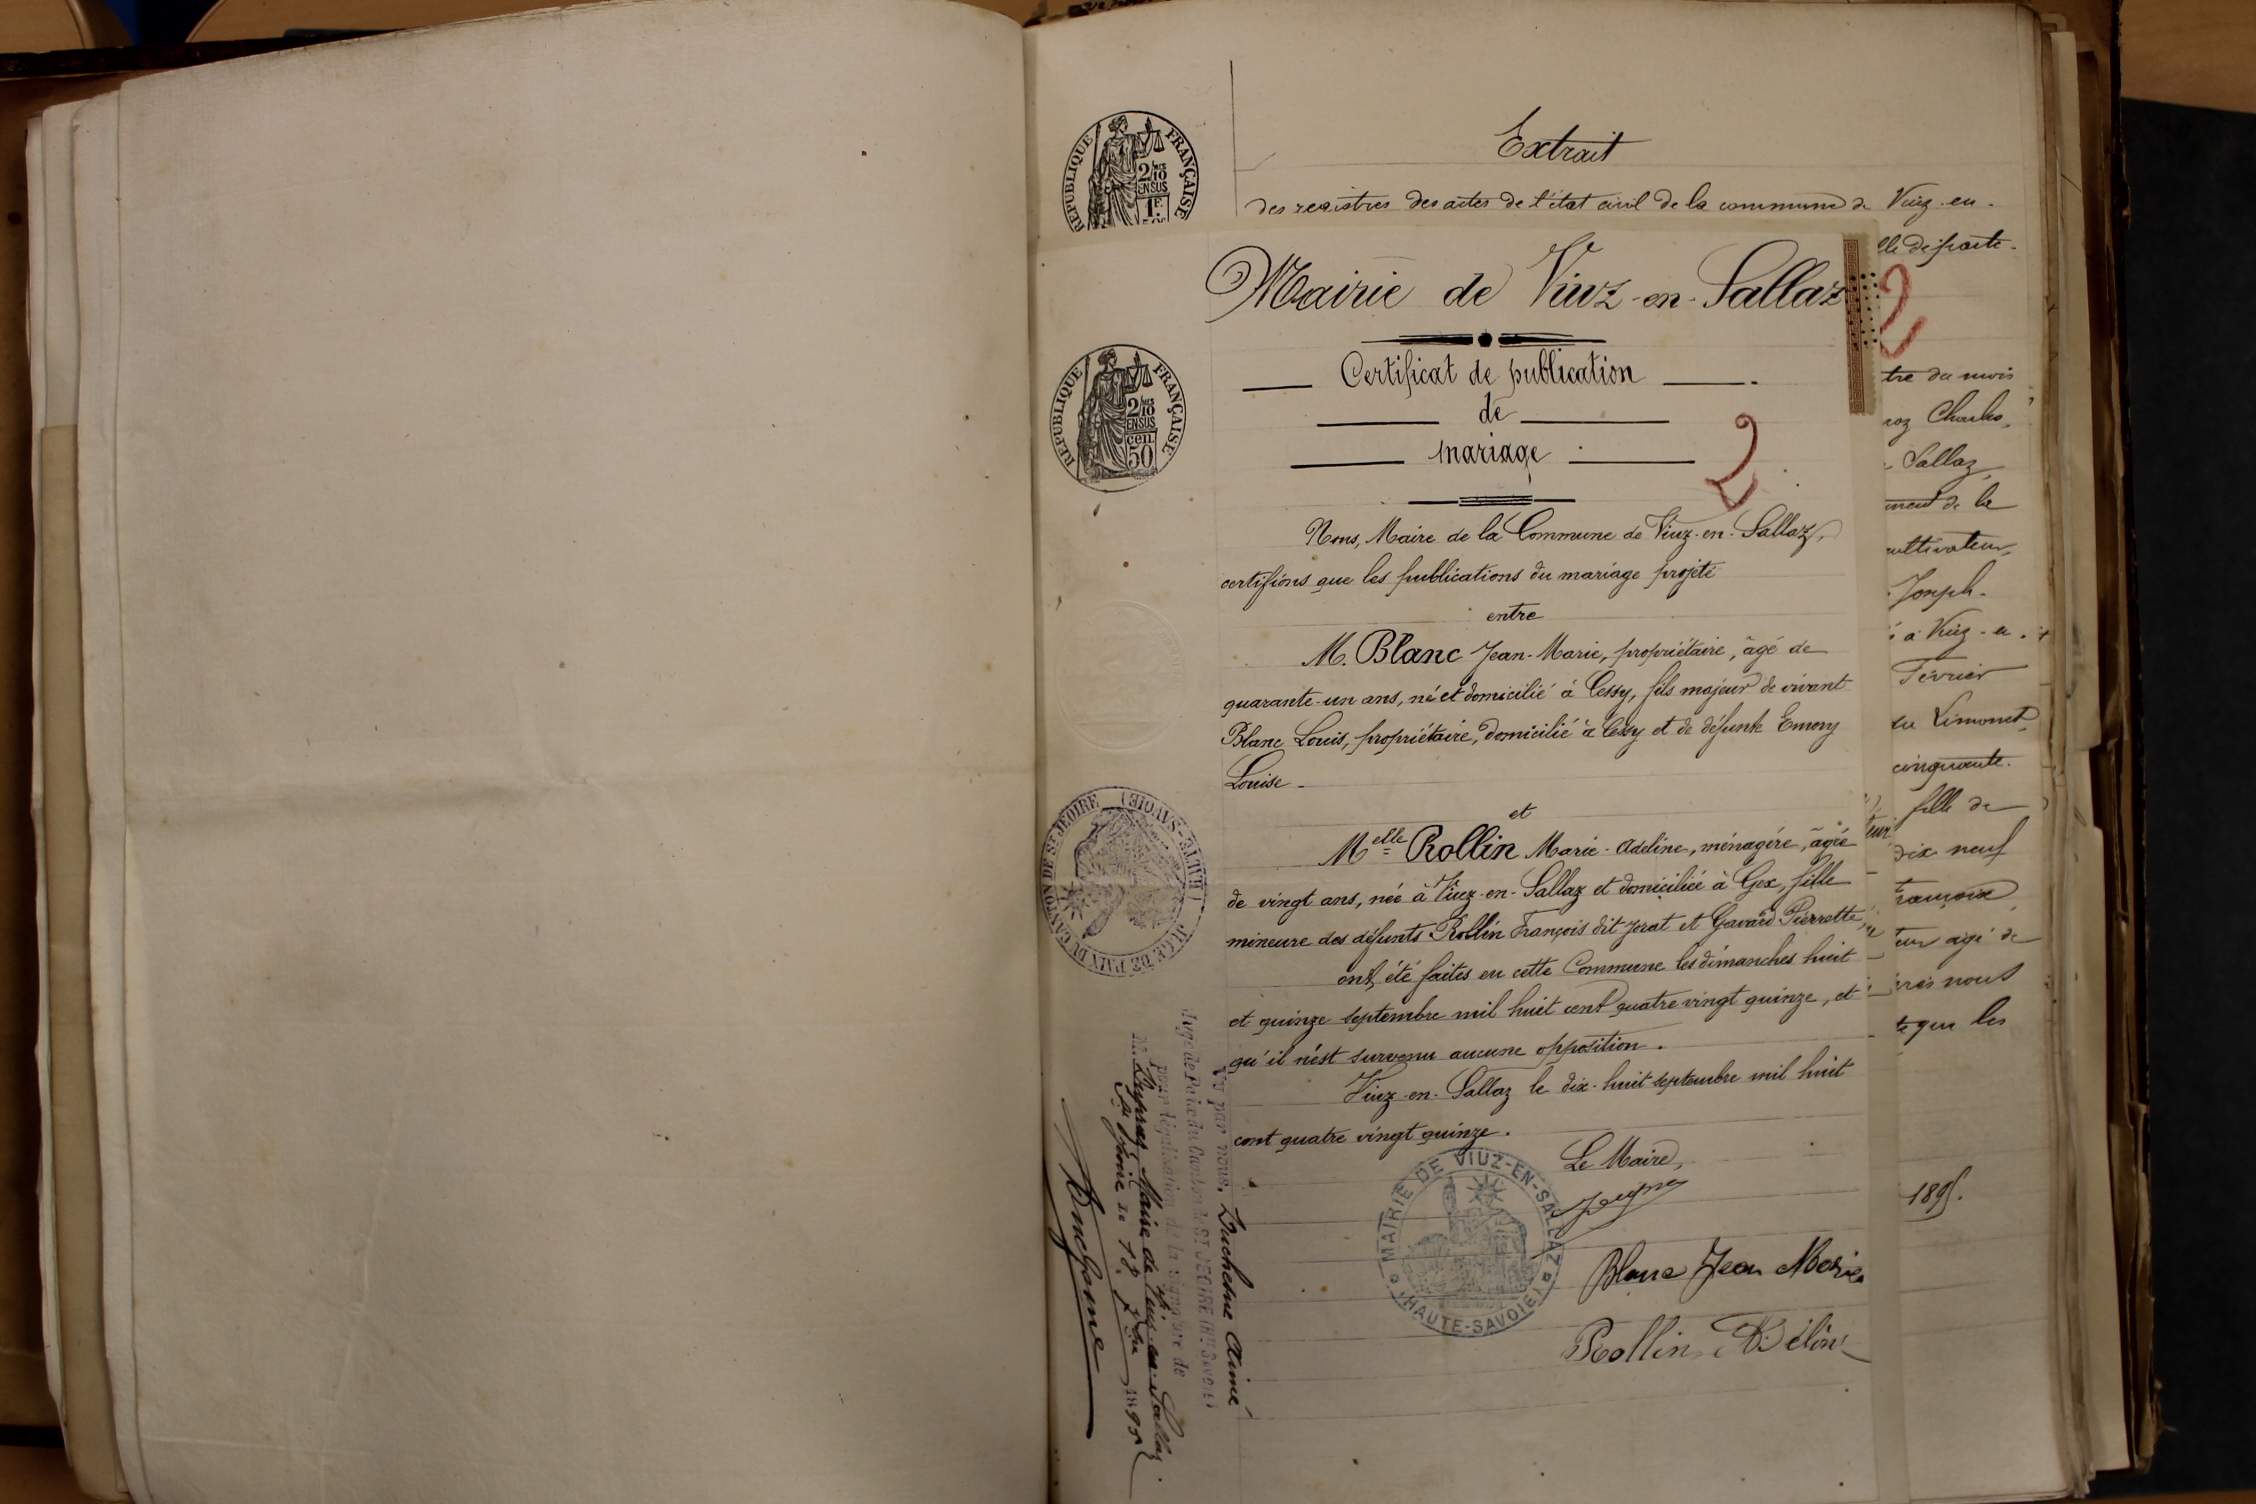 Extrait
des registres des actes de l'état civil de la commune de Viuz-en-
lle départe-
RÉPUBLIQUE FRANÇAISE
2/10
EN SUS
1F.
Mairie de Viuz-en-Sallaz
2
Certificat de publication
de
mariage
2
RÉPUBLIQUE FRANÇAISE
2/10
EN SUS
cen
50
Nous, Maire de la Commune de Viuz-en-Sallaz,
certifions que les publications du mariage projeté
entre
M. Blanc Jean-Marie, propriétaire, âgé de
quarante-un ans, né et domicilié à Cessy, fils majeur de vivant
Blanc Louis, propriétaire, domicilié à Cessy et de défunte Emery
Louise-
et
Melle Rollin Marie-Adeline, ménagère, âgée
de vingt ans, née à Viuz-en-Sallaz et domiciliée à Gex, fille
mineure des défunts Rollin François dit Jorat et Gavard Pierrette,
ont été faites en cette Commune les dimanches huit
et quinze septembre mil huit cent quatre vingt quinze, et
qu'il n'est survenu aucune opposition.
Viuz-en-Sallaz le dix-huit septembre mil huit
cent quatre vingt quinze.
Le Maire,
MAIRIE DE VIUZ-EN-SALLAZ
(HAUTE-SAVOIE)
Blanc Jean Marie
Rollin
JUGE DE PAIX DU CANTON DE ST JEOIRE (HAUTE-SAVOIE)
Vu par nous, Duchesne Aimé
Juge de Paix du Canton de ST JEOIRE (Hte Savoie)
pour légalisation de la signature de
M. Maire de Viuz-en-Sallaz
St Jeoire le 18 7bre 1895
tre du mois
roz Charles,
Sallaz,
ment de la
cultivateur,
Joseph-
é à Viuz-en-
Février
cinquante-
fille de
dix neuf
françois,
teur âgé de
nous
te que les
1895.